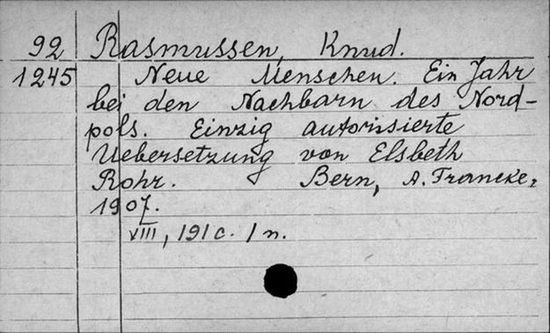 92 Rasmussen, Knud.
1245 Neue Menschen. Ein Jahr
bei den Nachbarn des Nord-
pols. Einzig autorisierte
Uebersetzung von Elsbeth
Rohr. Bern, A. Francke,
1907.
VIII, 191 c. 1 n.